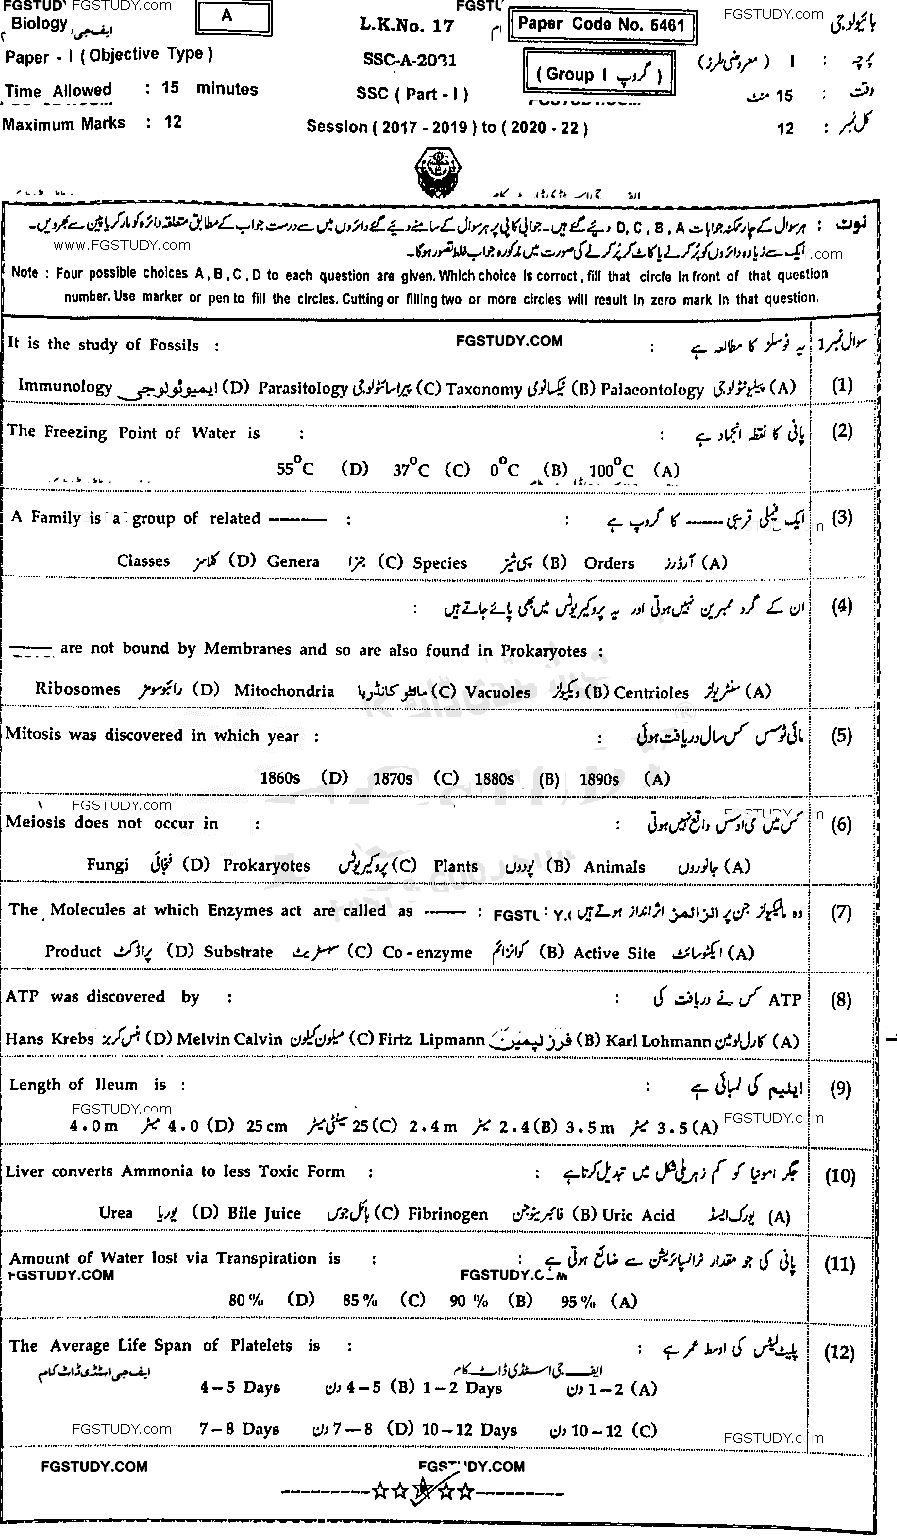 FGSTUDY FGSTUDY.com FGSTU FGSTUDY.com
Biology ایف جی A L.K.No. 17 Paper Code No. 5461 بائیولوجی
Paper - I ( Objective Type ) SSC-A-2021 (Group I گروپ ) پرچہ : I ( معروضی طرز )
Time Allowed : 15 minutes SSC ( Part - I ) FGSTUDY.COM وقت : 15 منٹ
Maximum Marks : 12 Session ( 2017 - 2019 ) to ( 2020 - 22 ) کل نمبر : 12
نوٹ : ہر سوال کے چار ممکنہ جوابات D, C, B, A دیئے گئے ہیں۔ جوابی کاپی پر ہر سوال کے سامنے دیئے گئے دائروں میں سے درست جواب کے مطابق متعلقہ دائرہ کو مارکر یا پین سے بھر دیں۔
www.FGSTUDY.com ایک سے زیادہ دائروں کو پُر کرنے یا کاٹ کر پُر کرنے کی صورت میں مذکورہ جواب غلط تصور ہوگا۔ .com
Note : Four possible choices A, B, C, D to each question are given. Which choice is correct, fill that circle in front of that question
number. Use marker or pen to fill the circles. Cutting or filling two or more circles will result in zero mark in that question.
It is the study of Fossils : FGSTUDY.COM یہ فوسلز کا مطالعہ ہے : سوال نمبر 1
Immunology ایمیونولوجی (D) Parasitology پیراسائٹولوجی (C) Taxonomy ٹیکسانومی (B) Palaeontology پیلیونٹولوجی (A) (1)
The Freezing Point of Water is : پانی کا نقطہ انجماد ہے : (2)
55°C (D) 37°C (C) 0°C (B) 100°C (A)
A Family is a group of related ——— : ایک فیملی قریبی ------ کا گروپ ہے : n (3)
Classes کلاسز (D) Genera جنرا (C) Species سپی شیز (B) Orders آرڈرز (A)
ان کے گرد ممبرین نہیں ہوتی اور یہ پروکیریوٹس میں بھی پائے جاتے ہیں : (4)
——— are not bound by Membranes and so are also found in Prokaryotes :
Ribosomes رائبوسومز (D) Mitochondria مائٹوکانڈریا (C) Vacuoles ویکیولز (B) Centrioles سنٹریولز (A)
Mitosis was discovered in which year : مائی ٹوسس کس سال دریافت ہوئی : (5)
1860s (D) 1870s (C) 1880s (B) 1890s (A)
FGSTUDY.com FGSTUDY n
Meiosis does not occur in : کس میں می اوسس واقع نہیں ہوتی : (6)
Fungi فنجائی (D) Prokaryotes پروکیریوٹس (C) Plants پودوں (B) Animals جانوروں (A)
The Molecules at which Enzymes act are called as ——— : FGSTU Y.( وہ مالیکیولز جن پر انزائمز اثرانداز ہوتے ہیں (7)
Product پراڈکٹ (D) Substrate سبسٹریٹ (C) Co-enzyme کو انزائم (B) Active Site ایکٹو سائٹ (A)
ATP was discovered by : ATP کس نے دریافت کی : (8)
Hans Krebs ہنس کربز (D) Melvin Calvin میلون کیلون (C) Firtz Lipmann فرز لپمین (B) Karl Lohmann کارل لوہمین (A)
Length of Ileum is : ایلیم کی لمبائی ہے : (9)
FGSTUDY.com
4.0 m 4.0 میٹر (D) 25 cm 25 سینٹی میٹر (C) 2.4 m 2.4 میٹر (B) 3.5 m 3.5 میٹر (A) FGSTUDY.c m
Liver converts Ammonia to less Toxic Form : جگر امونیا کو کم زہریلی شکل میں تبدیل کرتا ہے : (10)
Urea یوریا (D) Bile Juice بائل جوس (C) Fibrinogen فائبرینوجن (B) Uric Acid یورک ایسڈ (A)
Amount of Water lost via Transpiration is : پانی کی جو مقدار ٹرانسپائریشن سے ضائع ہوتی ہے : (11)
FGSTUDY.COM FGSTUDY.C M
80 % (D) 85 % (C) 90 % (B) 95 % (A)
The Average Life Span of Platelets is : پلیٹلیٹس کی اوسط عمر ہے : (12)
ایف جی اسٹڈی ڈاٹ کام ایف جی اسٹڈی ڈاٹ کام
4-5 Days 4-5 دن (B) 1-2 Days 1-2 دن (A)
FGSTUDY.com 7-8 Days 7-8 دن (D) 10-12 Days 10-12 دن (C) FGSTUDY.c m
FGSTUDY.COM FGST DY.COM